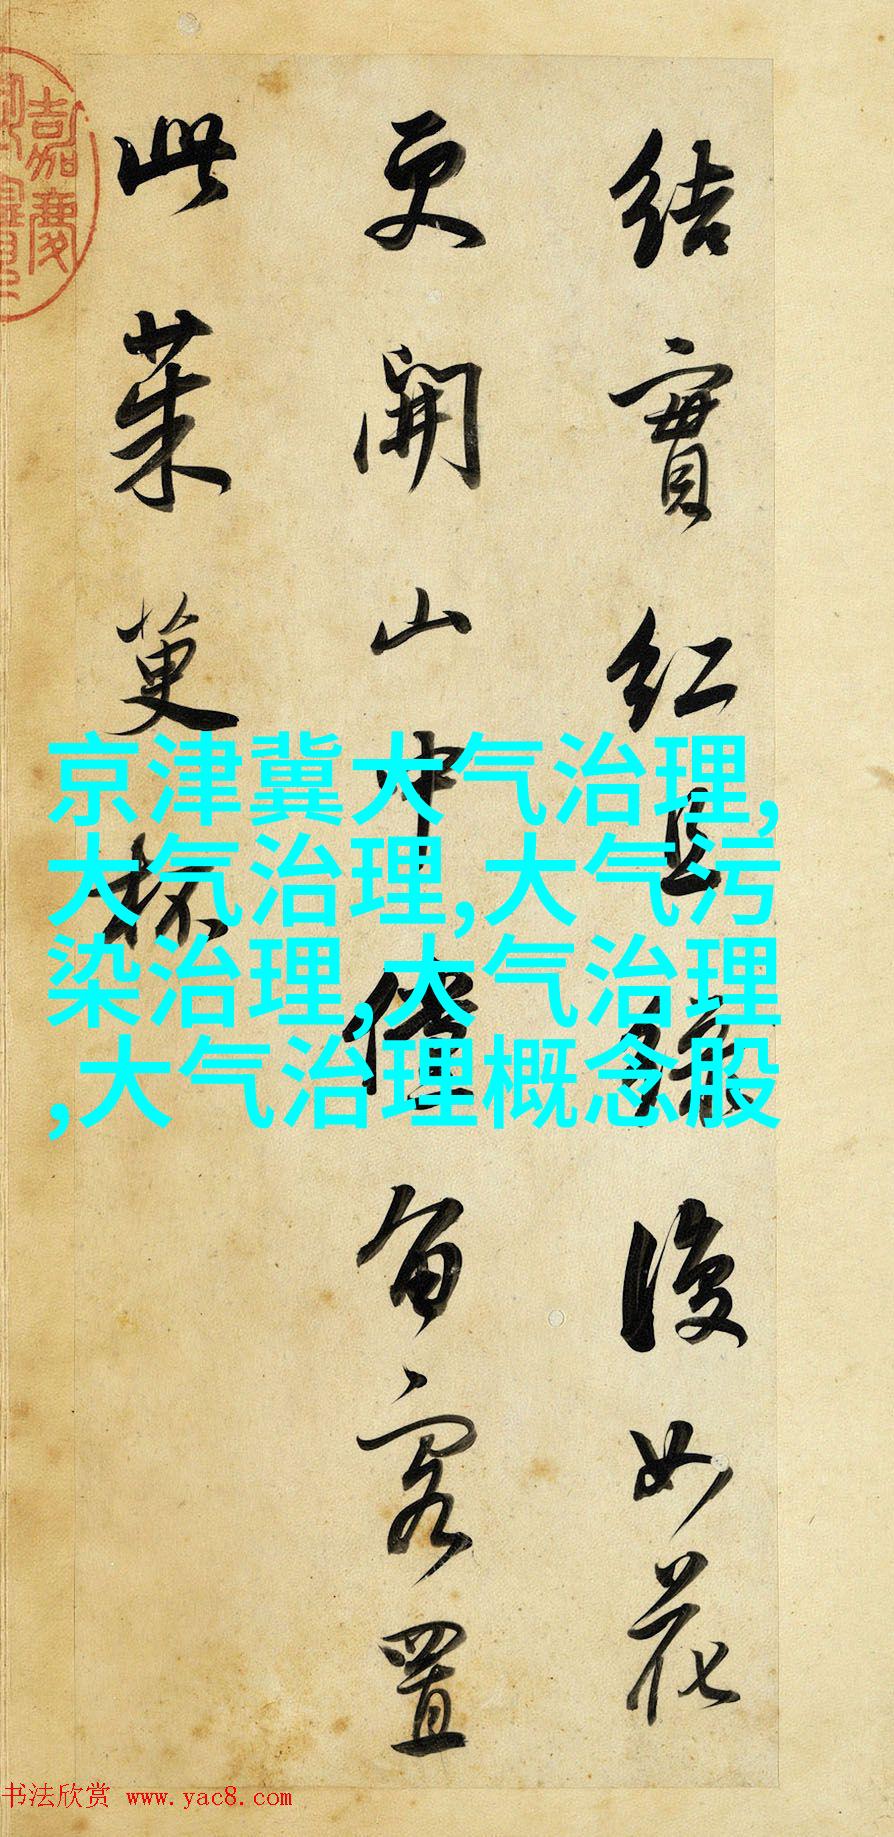 結實紅且綠復如花
更開山中儻留客置
此茱萸杯
嘉慶
京津冀大气治理,
大气治理,大气污
染治理,大气治理
,大气治理概念股
书法欣赏 www.yac8.com